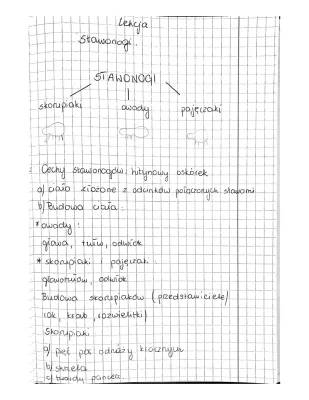 Lekcja
Stawonogi.
STAWONOGI
skorupiaki owady pajęczaki
Cechy stawonogów: hitynowy oskórek
a) ciało złożone z odcinków połączonych stawami
b) Budowa ciała:
* owady:
głowa, tułów, odwłok
* skorupiaki i pajęczaki
głowotułów, odwłok
Budowa skorupiaków (przedstawiciele/
rak, krab, rozwielitki)
Skorupiaki
a) pięć par odnóży krocznych
b) skrzela
c) twardy pancerz